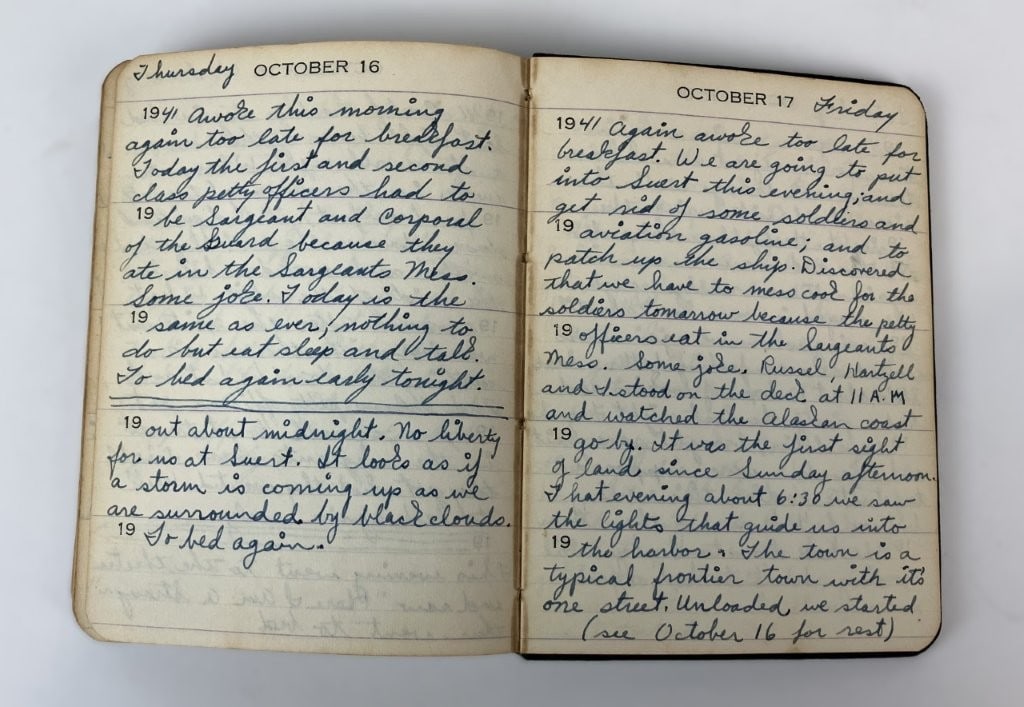 Thursday OCTOBER 16
1941 Awoke this morning
again too late for breakfast.
Today the first and second
class petty officers had to
19 be Sargeant and Corporal
of the Guard because they
ate in the Sargeants Mess.
Some joke. Today is the
19 same as ever; nothing to
do but eat sleep and talk.
To bed again early tonight.
19 out about midnight. No liberty
for us at Suert. It looks as if
a storm is coming up as we
are surrounded by black clouds.
19 To bed again.
OCTOBER 17 Friday
1941 Again awoke too late for
breakfast. We are going to put
into Suert this evening; and
get rid of some soldiers and
19 aviation gasoline; and to
patch up the ship. Discovered
that we have to mess cook for the
soldiers tomorrow because the petty
19 officers eat in the Sargeants
Mess. Some joke. Russel, Hartzell
and I stood on the deck at 11 A.M
and watched the Alaskan coast
19 go by. It was the first sight
of land since Sunday afternoon.
That evening about 6:30 we saw
the lights that guide us into
19 the harbor. The town is a
typical frontier town with it's
one street. Unloaded we started
(see October 16 for rest)